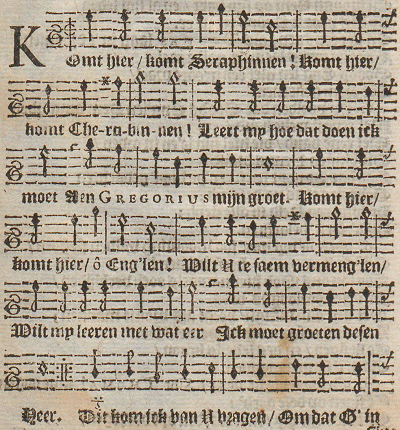 Komt hier/ komt Seraphinnen! Komt hier/
komt Che-ra-bin-nen! Leert my hoe dat doen ick
moet Aen GREGORIUS mijn groet. Komt hier/
komt hier/ ô Eng'len! Wilt U te saem vermeng'len/
Wilt my leeren met wat eer Ick moet groeten desen
Heer. Dit kom ick van U vragen/ Om dat G' in